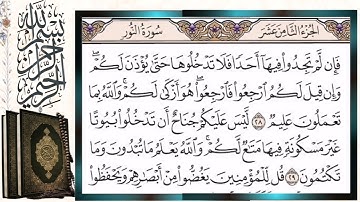 بسم الله الرحمن الرحيم
سُورَةُ النُّورِ
الجُزْءُ الثَّامِنَ عَشَرَ
فَإِن لَّمْ تَجِدُوا۟ فِيهَآ أَحَدًا فَلَا تَدْخُلُوهَا حَتَّىٰ يُؤْذَنَ لَكُمْ ۖ
وَإِن قِيلَ لَكُمُ ٱرْجِعُوا۟ فَٱرْجِعُوا۟ ۖ هُوَ أَزْكَىٰ لَكُمْ ۚ وَٱللَّهُ بِمَا
تَعْمَلُونَ عَلِيمٌ ۝٢٨ لَّيْسَ عَلَيْكُمْ جُنَاحٌ أَن تَدْخُلُوا۟ بُيُوتًا
غَيْرَ مَسْكُونَةٍ فِيهَا مَتَـٰعٌ لَّكُمْ ۚ وَٱللَّهُ يَعْلَمُ مَا تُبْدُونَ وَمَا
تَكْتُمُونَ ۝٢٩ قُل لِّلْمُؤْمِنِينَ يَغُضُّوا۟ مِنْ أَبْصَـٰرِهِمْ وَيَحْفَظُوا۟